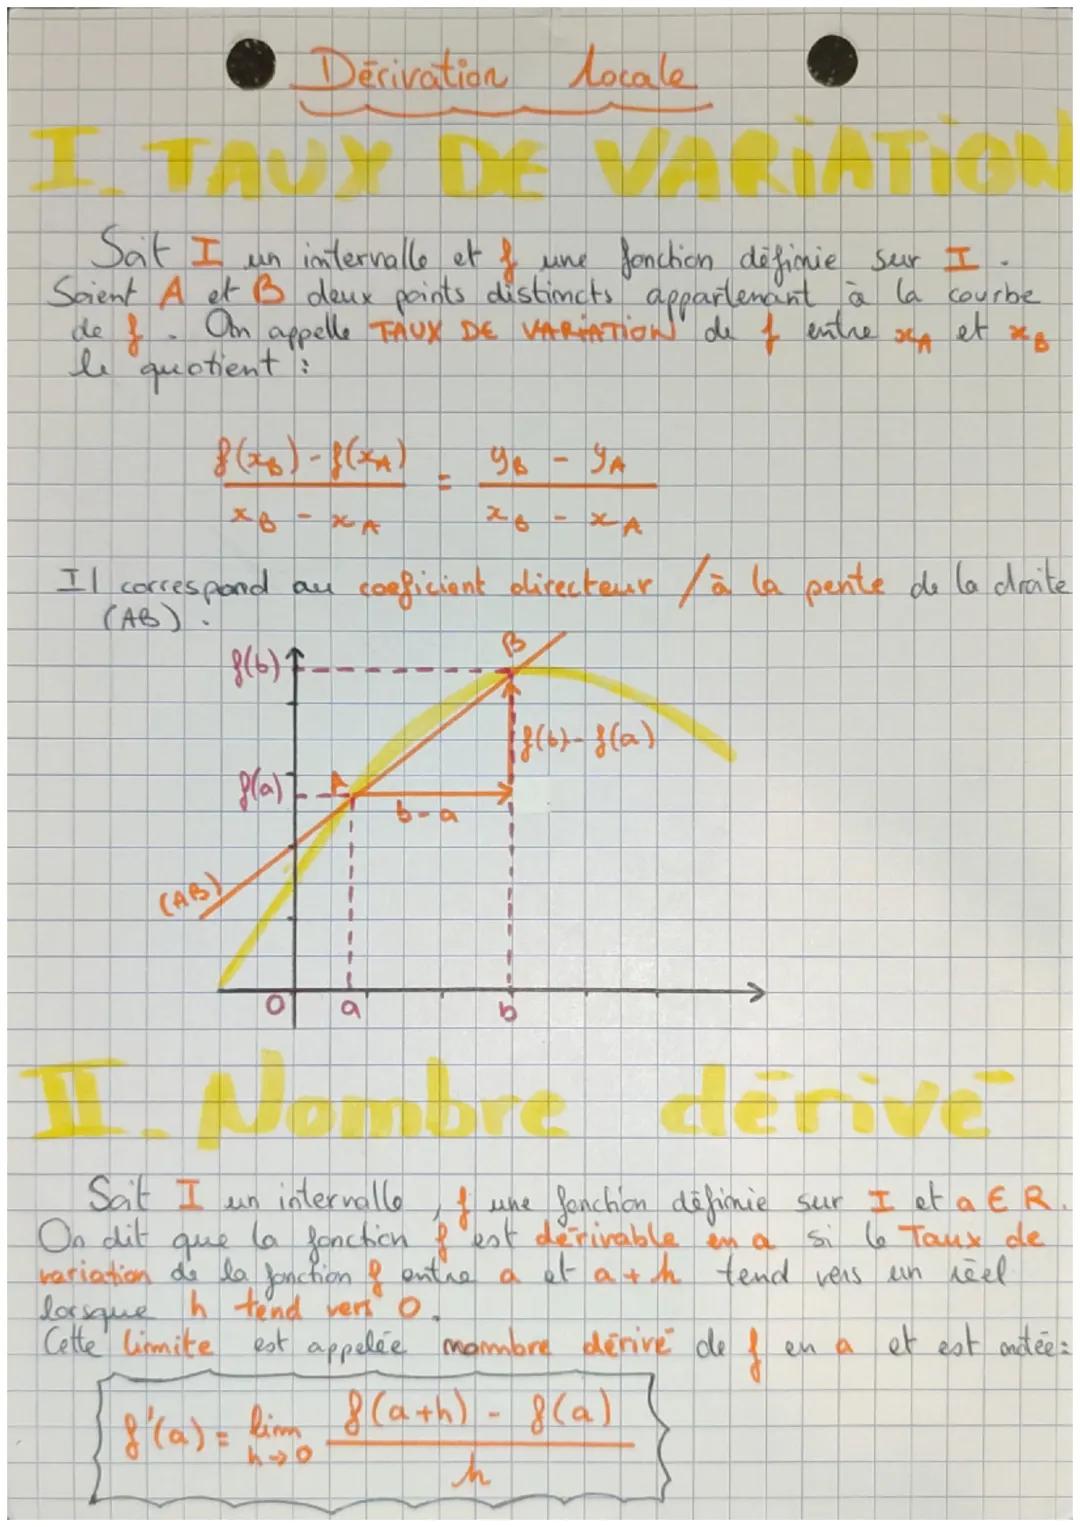 Dérivation locale
I. TAUX DE VARIATION
Soit I un intervalle et f une fonction définie sur I.
Soient A et B deux points distincts appartenant à la courbe
de f. On appelle TAUX DE VARIATION de f entre xA et xB
le quotient :
f(xB) - f(xA) / xB - xA = yB - yA / xB - xA
Il correspond au coeficient directeur / à la pente de la droite
(AB).
B
f(b)
f(b) - f(a)
f(a)
A
b-a
(AB)
O a b
II. Nombre dérivé
Soit I un intervalle, f une fonction définie sur I et a ∈ R.
On dit que la fonction f est dérivable en a si le Taux de
variation de la fonction f entre a et a + h tend vers un réel
lorsque h tend vers 0.
Cette limite est appelée nombre dérivé de f en a et est notée :
f'(a) = lim h→0 f(a+h) - f(a) / h